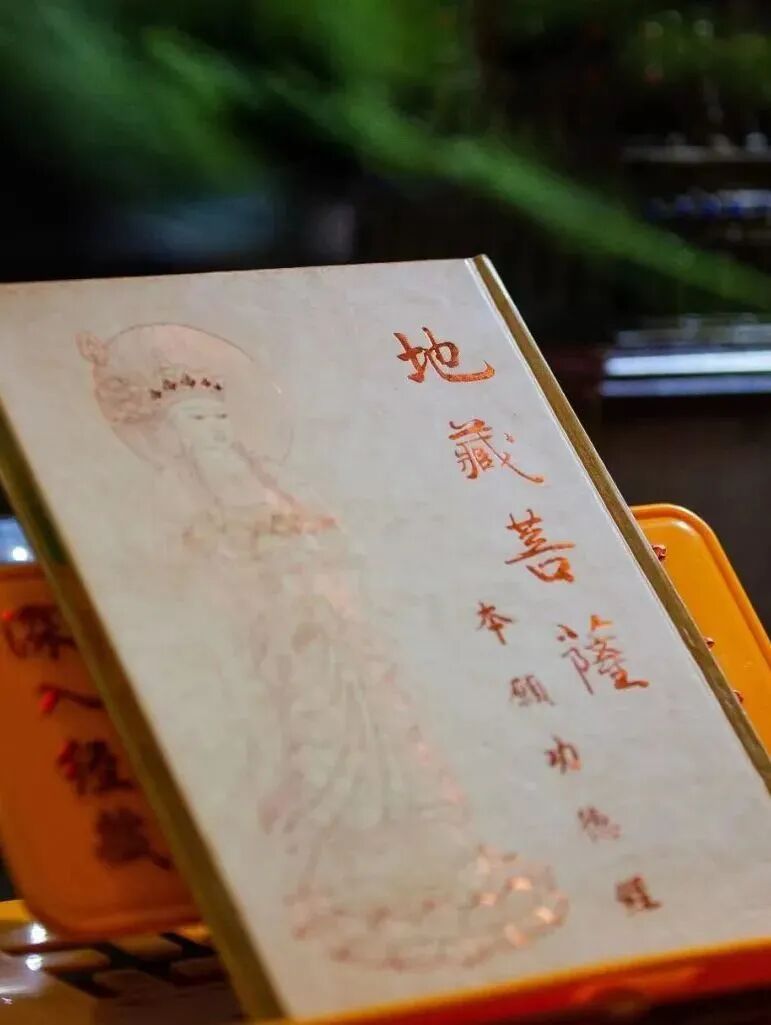 地藏菩薩
本願功德經
深入經藏